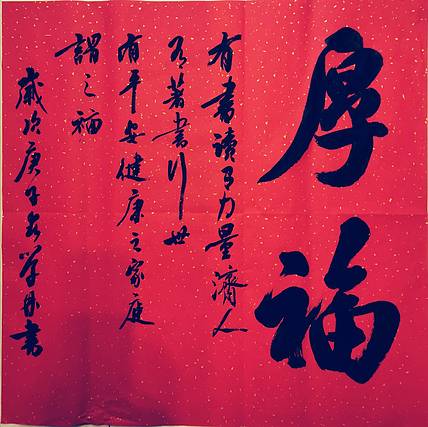 厚福
有書讀有力量濟人
有著書行世
有平安健康之家庭
謂之福
歲次庚子學書